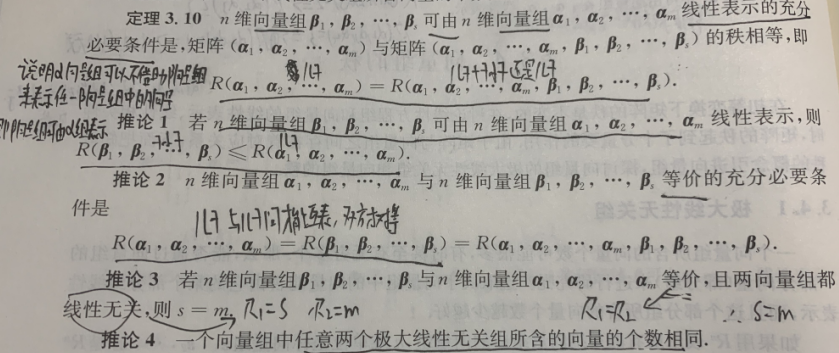 定理 3.10 n 维向量组 β₁, β₂, ⋯, βₛ 可由 n 维向量组 α₁, α₂, ⋯, αₘ 线性表示的充分
必要条件是,矩阵 (α₁, α₂, ⋯, αₘ) 与矩阵 (α₁, α₂, ⋯, αₘ, β₁, β₂, ⋯, βₛ) 的秩相等,即
说明α向量组可以不借助β向量组
来表示任一β向量组中的向量
即β向量组可由α组表示
R(α₁, α₂, ⋯, αₘ) = R(α₁, α₂, ⋯, αₘ, β₁, β₂, ⋯, βₛ).
推论 1 若 n 维向量组 β₁, β₂, ⋯, βₛ 可由 n 维向量组 α₁, α₂, ⋯, αₘ 线性表示,则
R(β₁, β₂, ⋯, βₛ) ≤ R(α₁, α₂, ⋯, αₘ).
推论 2 n 维向量组 α₁, α₂, ⋯, αₘ 与 n 维向量组 β₁, β₂, ⋯, βₛ 等价的充分必要条
件是
R(α₁, α₂, ⋯, αₘ) = R(β₁, β₂, ⋯, βₛ) = R(α₁, α₂, ⋯, αₘ, β₁, β₂, ⋯, βₛ).
推论 3 若 n 维向量组 β₁, β₂, ⋯, βₛ 与 n 维向量组 α₁, α₂, ⋯, αₘ 等价,且两向量组都
线性无关,则 s = m. R₁=S R₂=m R₁=R₂ ∴ S=m
推论 4 一个向量组中任意两个极大线性无关组所含的向量的个数相同.